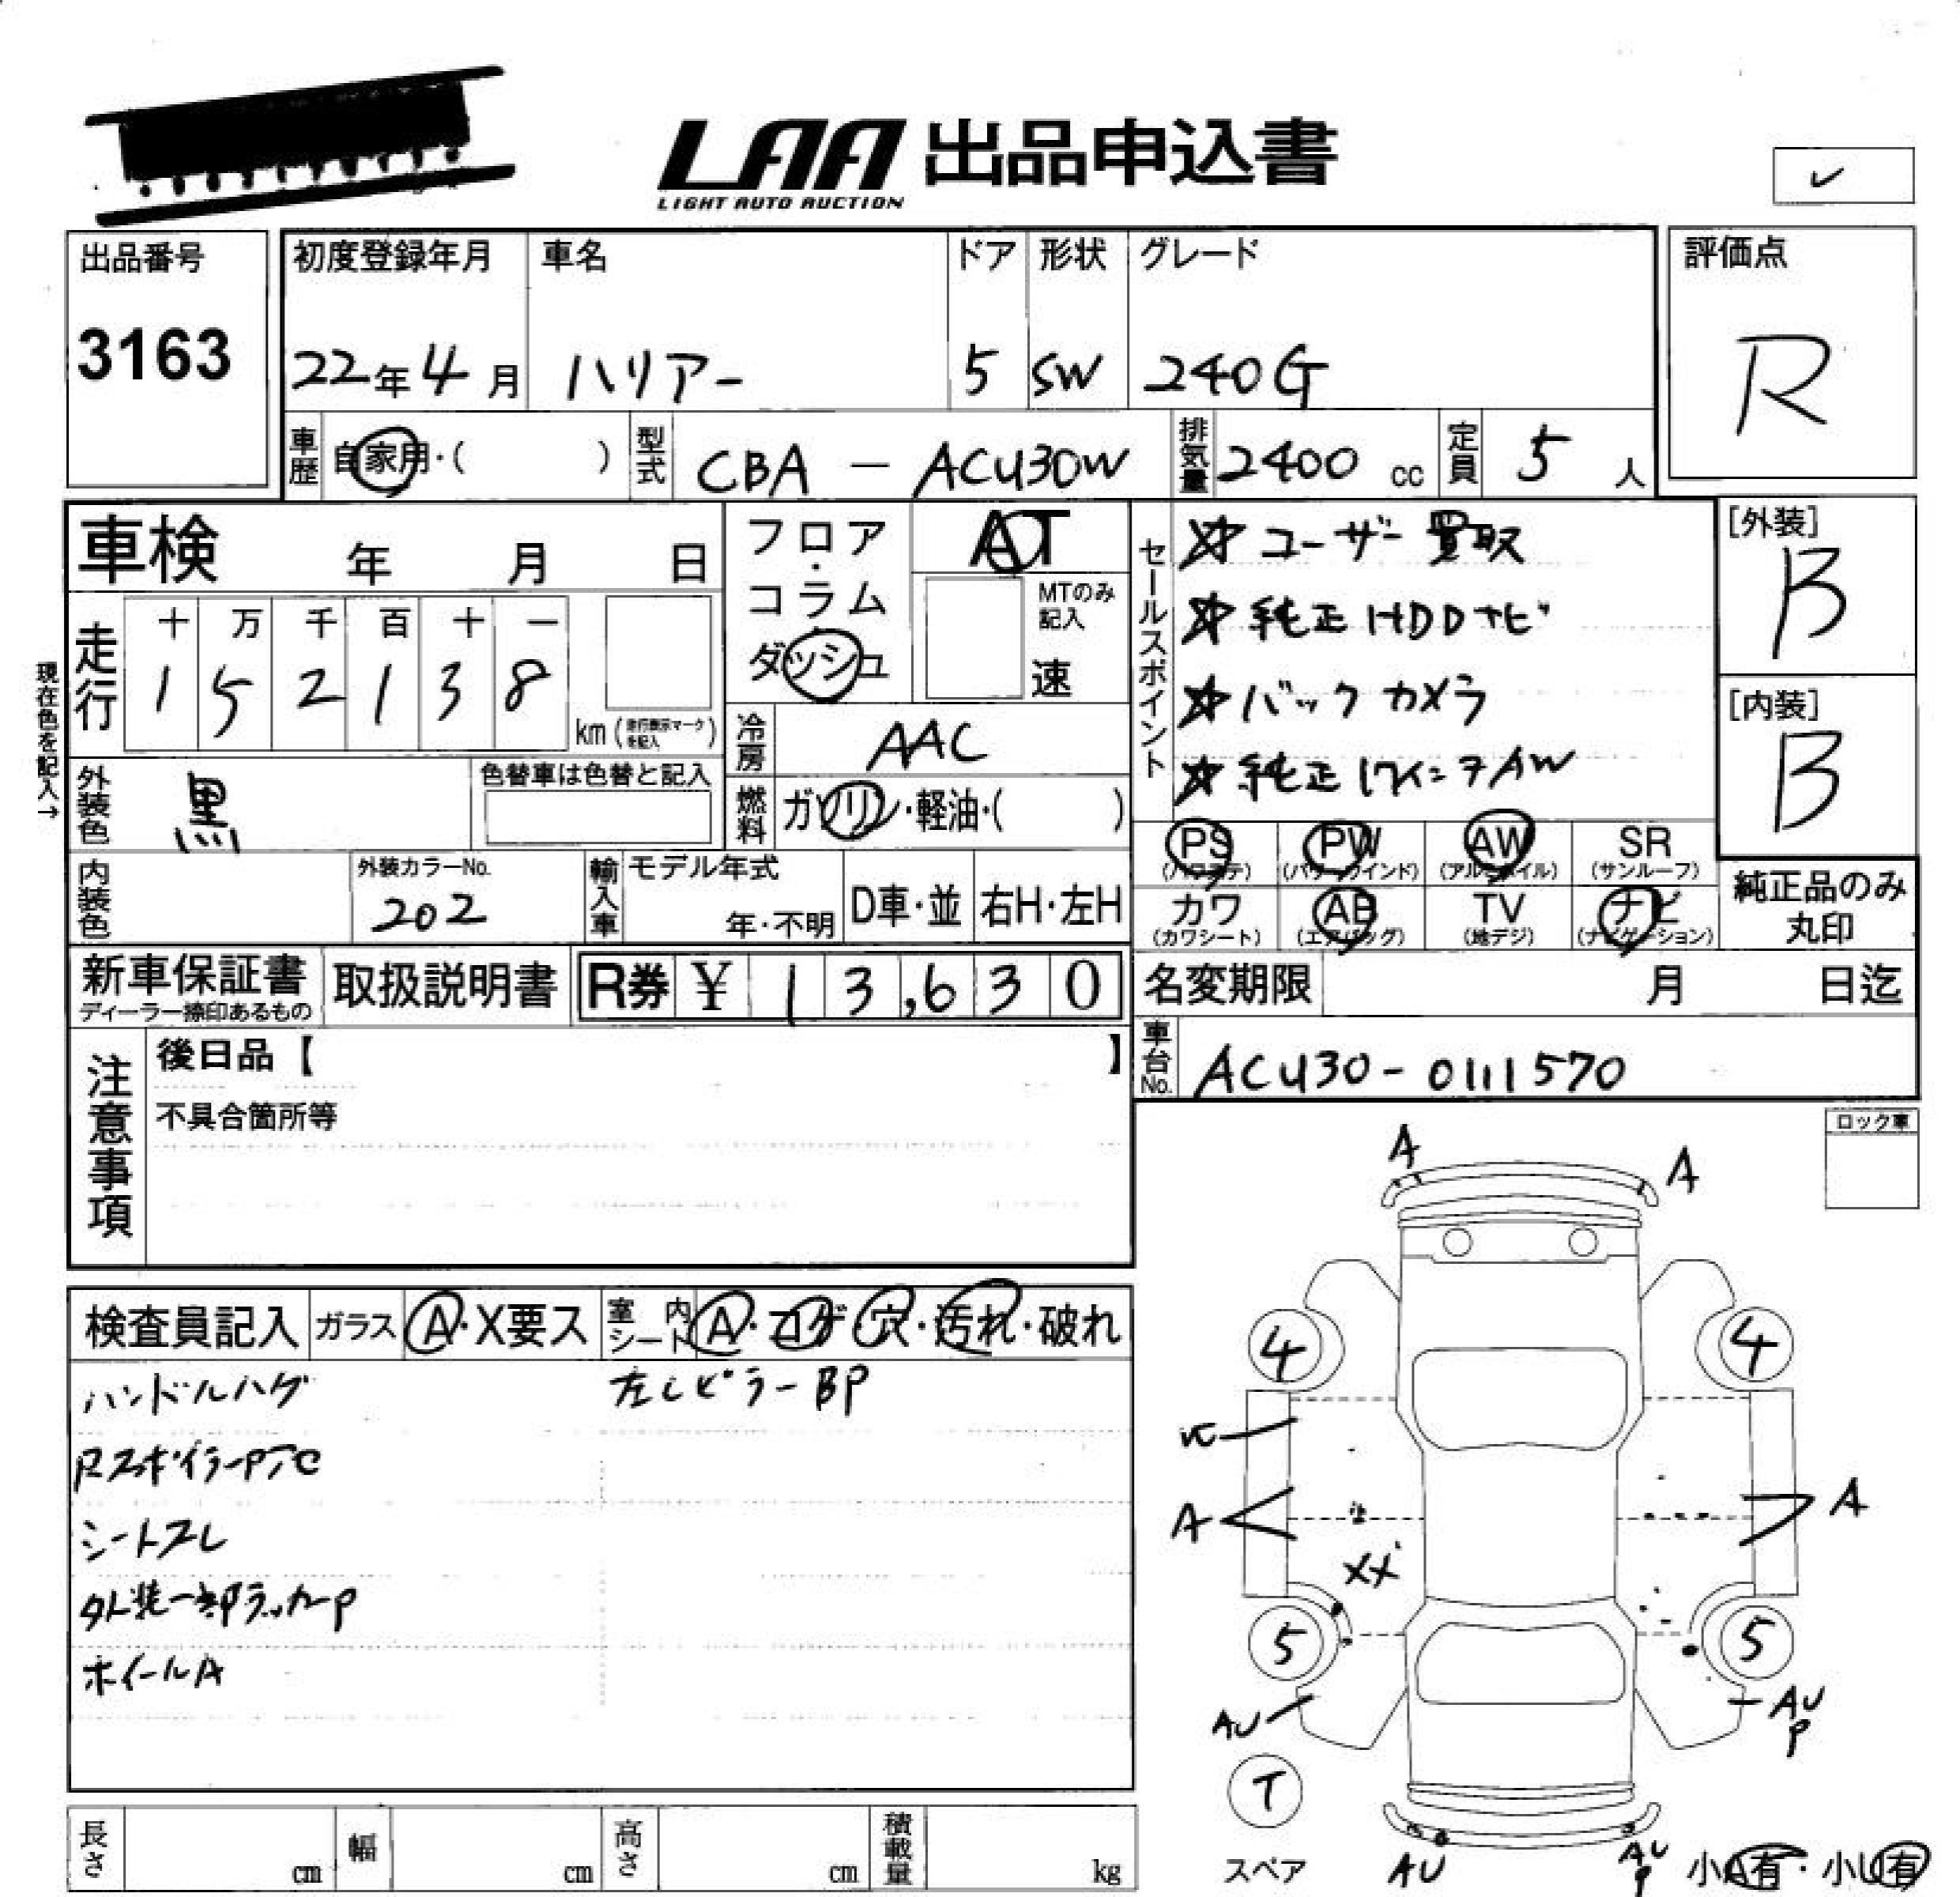 LAA 出品申込書
LIGHT AUTO AUCTION
出品番号
3163
初度登録年月
22年4月
車名
ハリアー
ドア
5
形状
SW
グレード
240G
評価点
R
車歴
自家用・( )
型式
CBA - ACU30W
排気量
2400 cc
定員
5 人
車検 年 月 日
フロア・コラム・ダッシュ
AT
MTのみ記入
速
セールスポイント
☆ユーザー買取
☆純正HDDナビ
☆バックカメラ
☆純正17インチAW
[外装]
B
[内装]
B
現在色を記入→
走行
十 万 千 百 十 一
1 5 2 1 3 8
km (走行表示マークを記入)
冷房
AAC
外装色
黒
色替車は色替と記入
燃料
ガソリン・軽油・( )
PS (パワステ)
PW (パワーウインド)
AW (アルミホイル)
SR (サンルーフ)
内装色
外装カラーNo.
202
輸入車
モデル年式
年・不明
D車・並
右H・左H
カワ (カワシート)
AB (エアバッグ)
TV (地デジ)
ナビ (ナビゲーション)
純正品のみ丸印
新車保証書
ディーラー捺印あるもの
取扱説明書
R券 ¥ 13,630
名変期限 月 日迄
車台No.
ACU30-0111570
注意事項
後日品【 】
不具合箇所等
ロック車
検査員記入
ガラス A・X要ス
室内シート A・コゲ・穴・汚れ・破れ
ハンドルハゲ
左Cピラー BP
シートスレ
外装一部ラッカーP
ホイールA
A
A
4
4
A
A
XX
5
5
AU
AU
P
T
スペア
AU
AU
P
小A有・小U有
長さ cm
幅 cm
高さ cm
積載量 kg